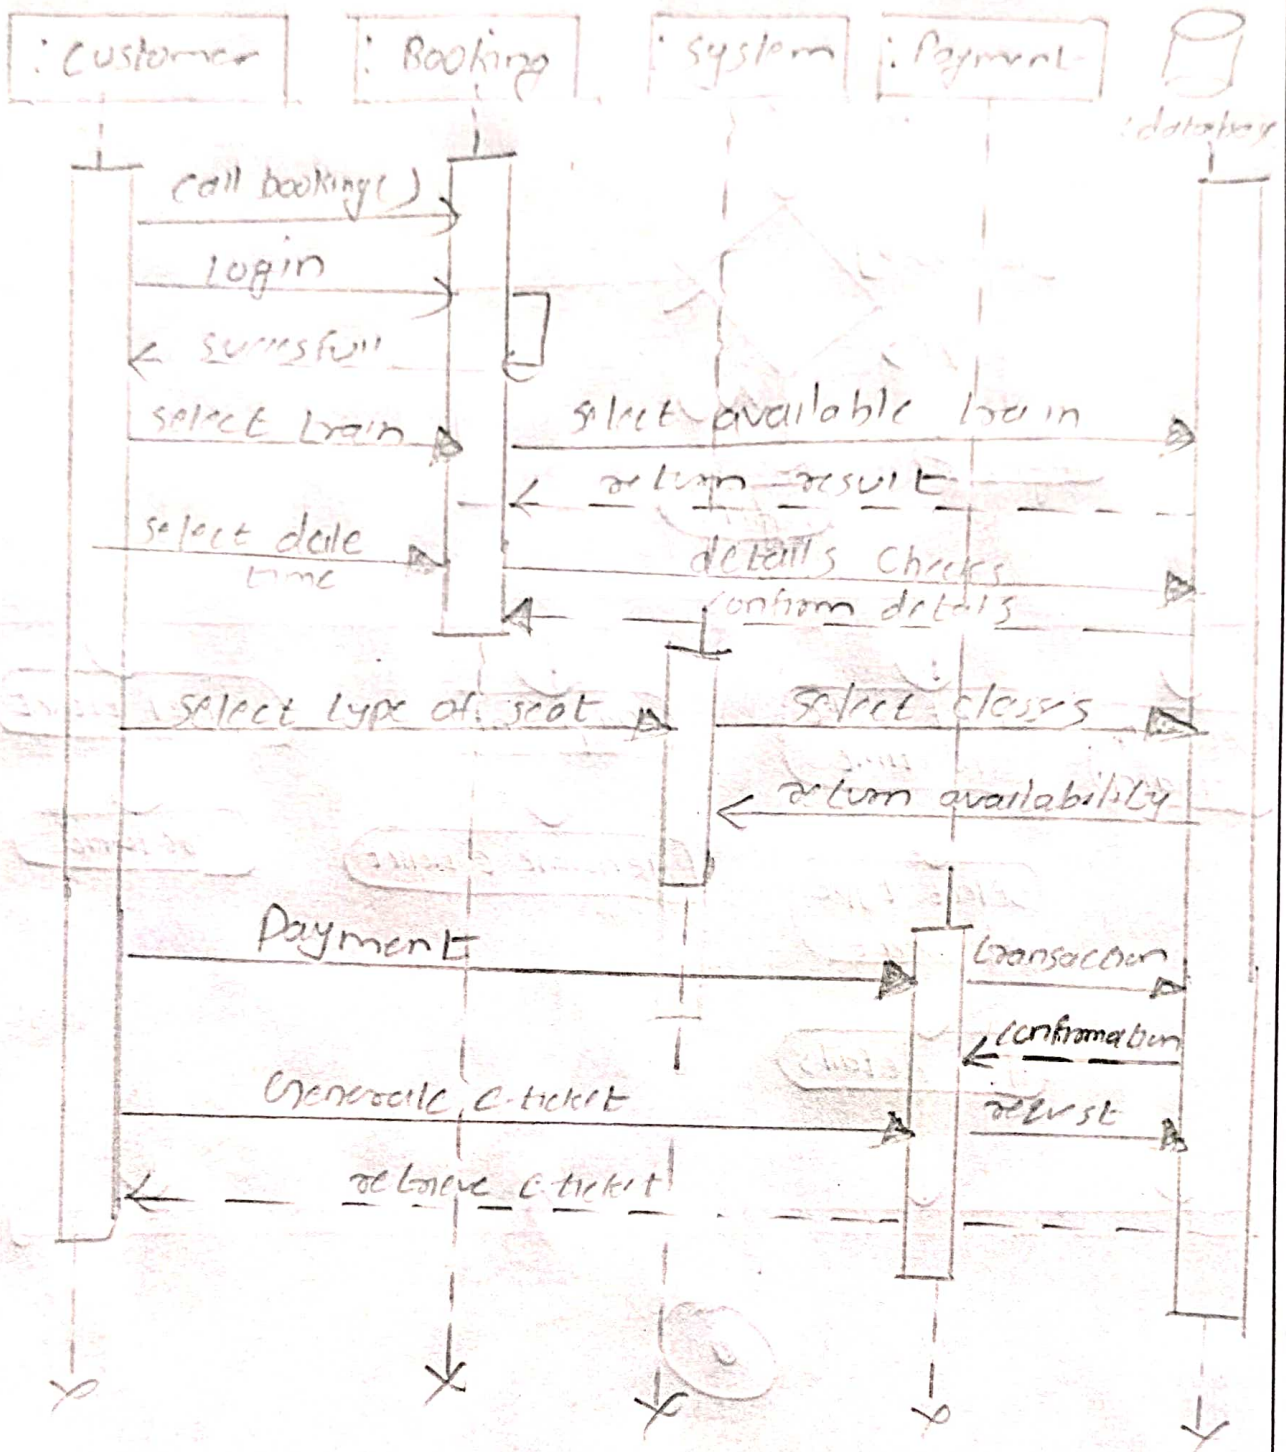 : Customer
: Booking
: System
: Payment
: database
Call booking()
Login
succesfull
select train
select available train
return result
select date
time
details checks
confirm details
select type of seat
select classes
return availability
Payment
transaction
confirmation
Generate e-ticket
request
retrieve e-ticket